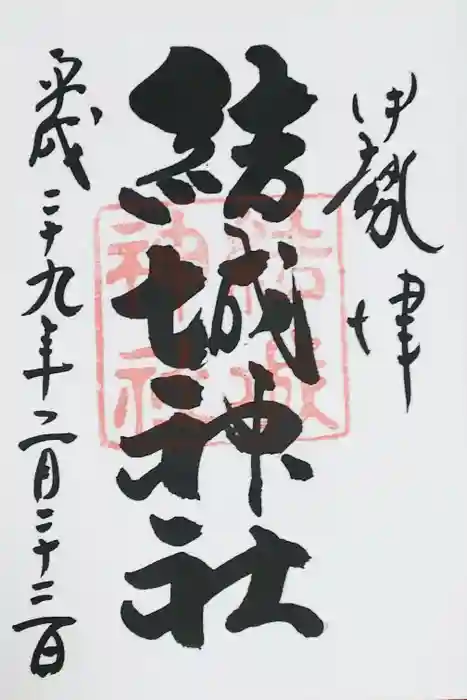 伊勢津
結城神社
平成二十九年二月二十二日
結城
神社